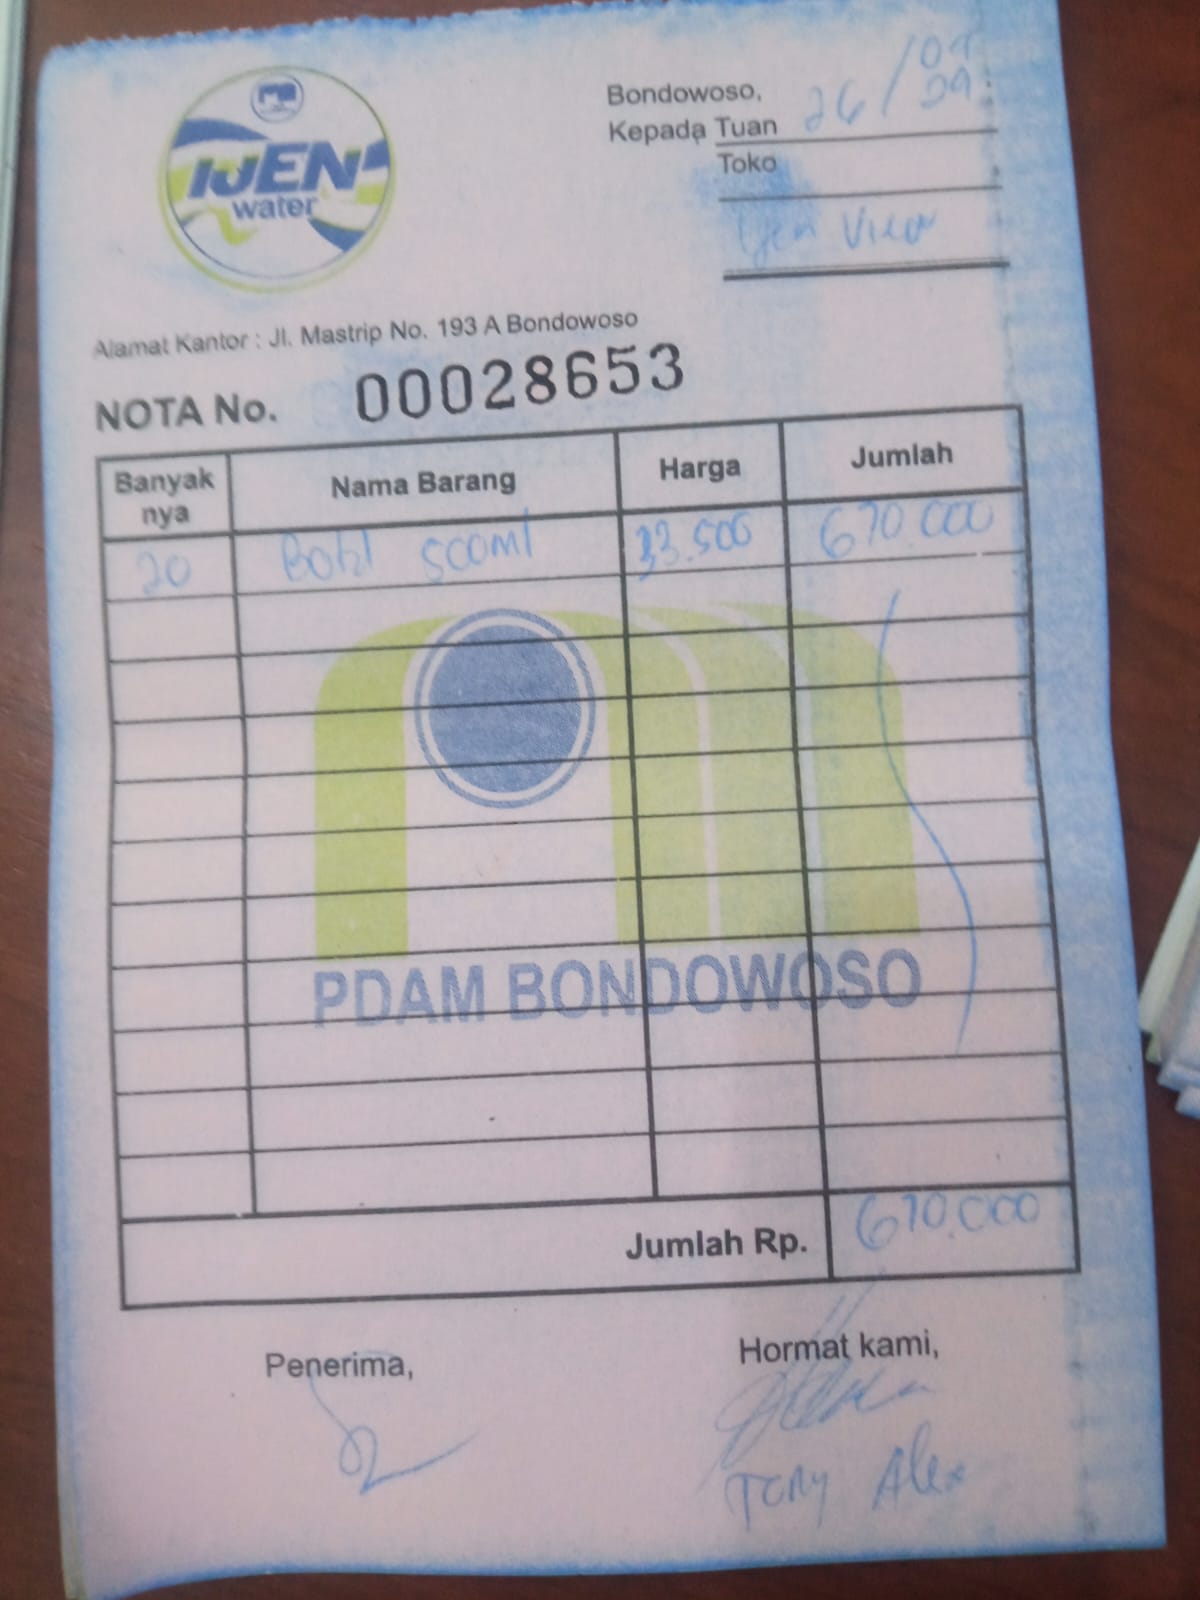 IJEN
water
Bondowoso,
26/
Kepada Tuan
Toko
Ijen View
Alamat Kantor : Jl. Mastrip No. 193 A Bondowoso
NOTA No. 00028653
Banyak nya Nama Barang Harga Jumlah
20 Botol 500ml 33.500 670.000
PDAM BONDOWOSO
Jumlah Rp. 670.000
Penerima, Hormat kami,
Tony Alex